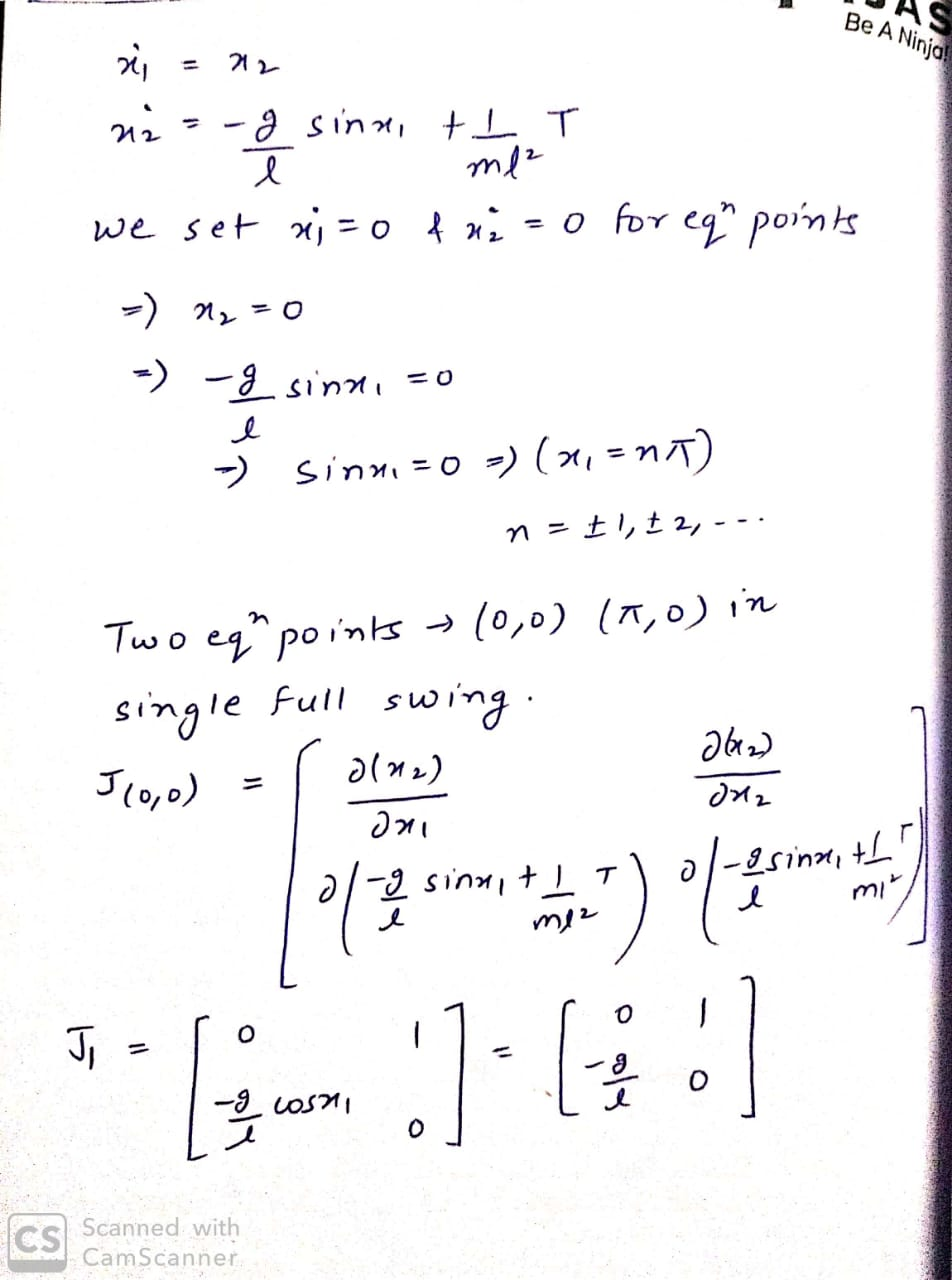 AS
Be A Ninja!
ẋ₁ = x₂
ẋ₂ = -g/l sinx₁ + 1/ml² T
we set ẋ₁ = 0 & ẋ₂ = 0 for eqⁿ points
=) x₂ = 0
=) -g/l sinx₁ = 0
=) sinx₁ = 0 =) (x₁ = nπ)
n = ±1, ±2, ---
Two eqⁿ points → (0,0) (π,0) in
single full swing.
J(0,0) = [ ∂(x₂)/∂x₁ ∂(x₂)/∂x₂
∂(-g/l sinx₁ + 1/ml² T) ∂(-g/l sinx₁ + 1/ml² T) ]
J₁ = [ 0 1 ; -g/l cosx₁ 0 ] = [ 0 1 ; -g/l 0 ]
CS Scanned with
CamScanner